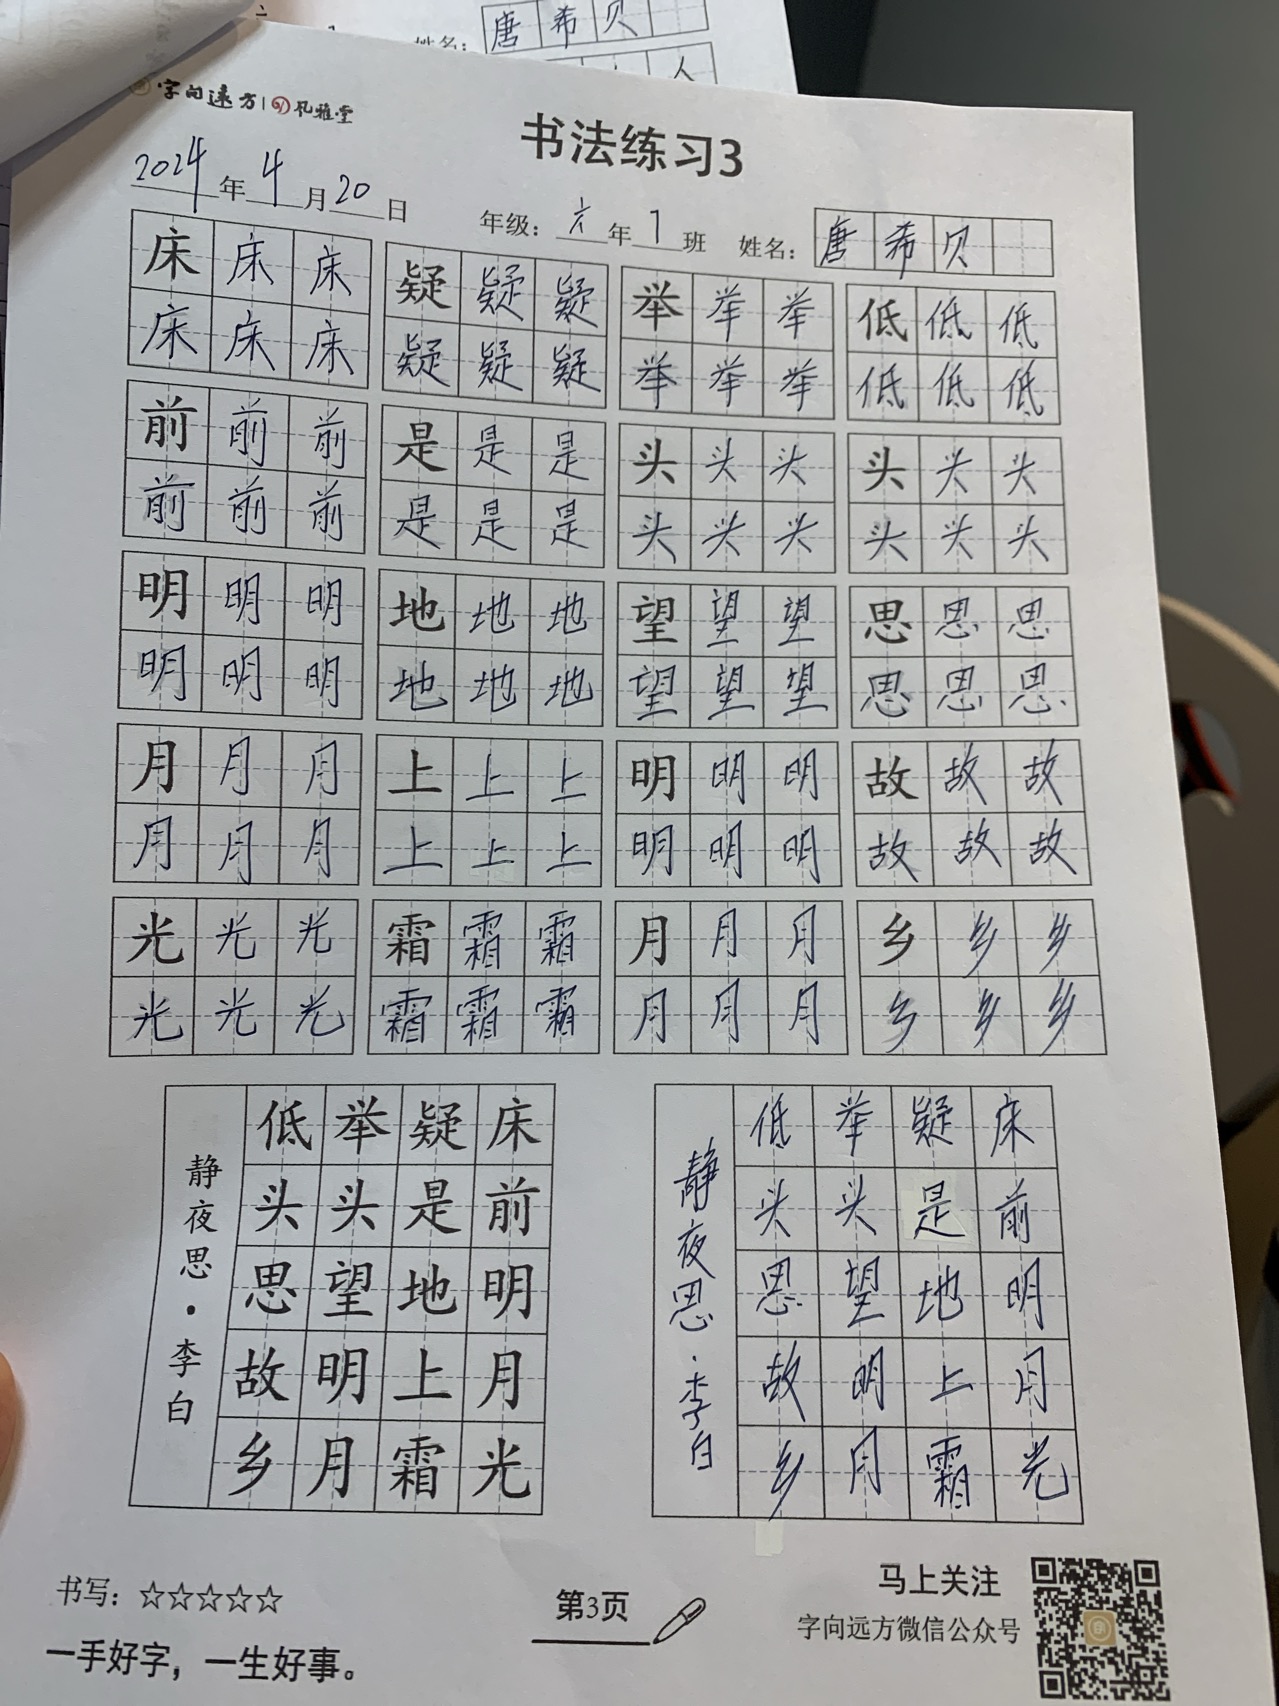 姓名：唐希贝
人
字向远方 | 风雅堂
书法练习3
2024年4月20日 年级：六年1班 姓名：唐希贝
床床床 疑疑疑 举举举 低低低
床床床 疑疑疑 举举举 低低低
前前前 是是是 头头头 头头头
前前前 是是是 头头头 头头头
明明明 地地地 望望望 思思思
明明明 地地地 望望望 思思思
月月月 上上上 明明明 故故故
月月月 上上上 明明明 故故故
光光光 霜霜霜 月月月 乡乡乡
光光光 霜霜霜 月月月 乡乡乡
床前明月光
疑是地上霜
举头望明月
低头思故乡
静夜思·李白
床前明月光
疑是地上霜
举头望明月
低头思故乡
静夜思·李白
书写：☆☆☆☆☆
一手好字，一生好事。
第3页
马上关注
字向远方微信公众号